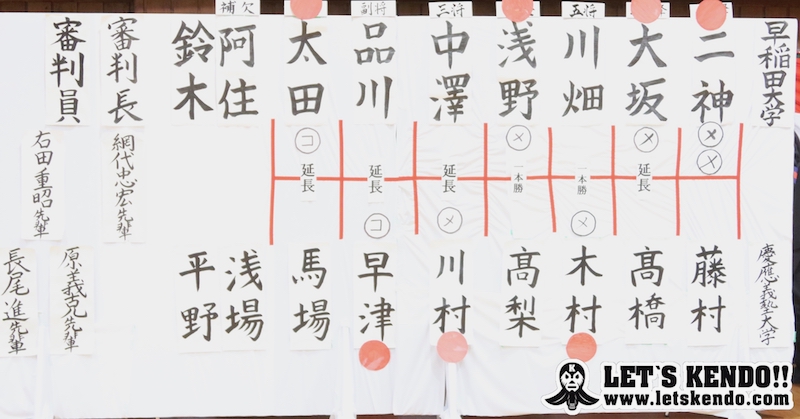 早稲田大学
慶應義塾大学
二神
メ
メ
藤村
大坂
メ
延長
髙橋
五将
川畑
一本勝
メ
木村
浅野
メ
一本勝
髙梨
三将
中澤
延長
メ
川村
副将
品川
延長
コ
早津
太田
コ
延長
馬場
補欠
阿住
鈴木
浅場
平野
審判長
網代忠宏先輩
審判員
原義克先輩
右田重昭先輩
長尾進先輩
LET`S KENDO!!
www.letskendo.com